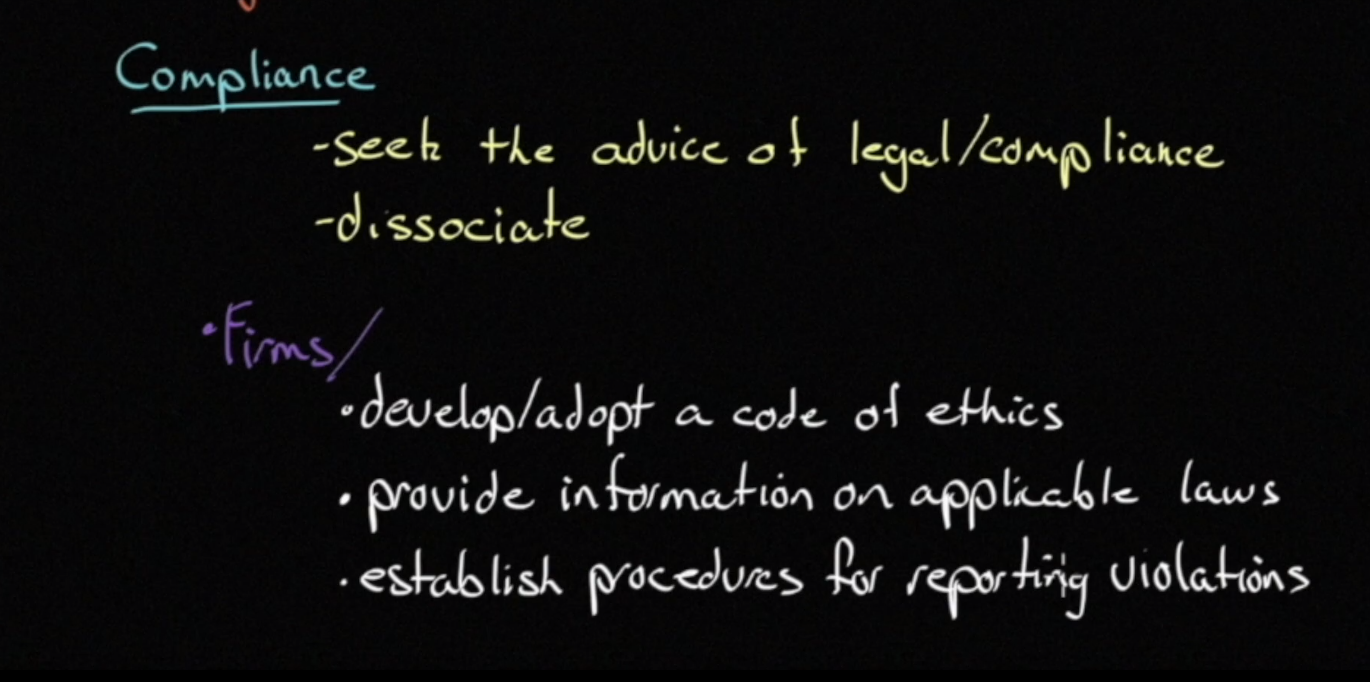 Compliance
-seek the advice of legal/compliance
-dissociate
•Firms/
•develop/adopt a code of ethics
•provide information on applicable laws
•establish procedures for reporting violations